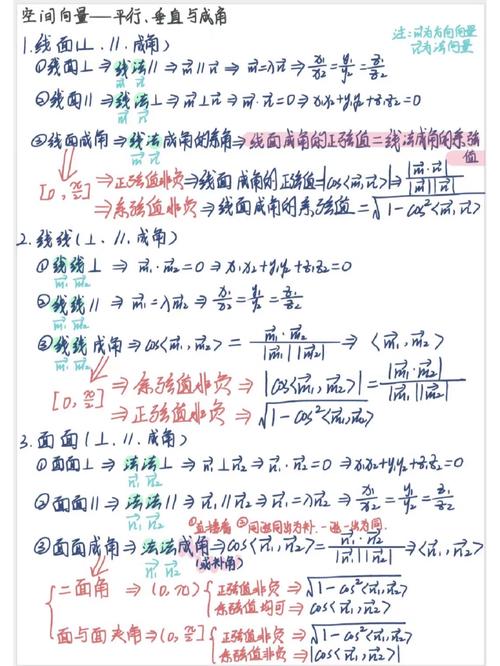 空间向量——平行、垂直与成角
注: m⃗为方向向量
n⃗为法向量
1.线面(⊥.∥.成角)
①线面⊥ ⇒ 线法∥ ⇒ m⃗∥n⃗ ⇒ m⃗=λn⃗ ⇒ x₁/x₂ = y₁/y₂ = z₁/z₂
m⃗ n⃗
②线面∥ ⇒ 线法⊥ ⇒ m⃗⊥n⃗ ⇒ m⃗·n⃗=0 ⇒ x₁x₂+y₁y₂+z₁z₂=0
m⃗ n⃗
③线面成角 ⇒ 线法成角的余角 ⇒ 线面成角的正弦值=线法成角的余弦值
m⃗ n⃗
[0, π/2] ⇒ 正弦值非负 ⇒ 线面成角的正弦值=|cos<m⃗,n⃗>| ⇒ |m⃗·n⃗|/|m⃗||n⃗|
⇒ 余弦值非负 ⇒ 线面成角的余弦值=√1-cos²<m⃗,n⃗>
2.线线(⊥.∥.成角)
①线线⊥ ⇒ m⃗₁·m⃗₂=0 ⇒ x₁x₂+y₁y₂+z₁z₂=0
m⃗₁ m⃗₂
②线线∥ ⇒ m⃗₁=λm⃗₂ ⇒ x₁/x₂ = y₁/y₂ = z₁/z₂
m⃗₁ m⃗₂
③线线成角 ⇒ cos<m⃗₁,m⃗₂> = m⃗₁·m⃗₂/|m⃗₁||m⃗₂| ⇒ <m⃗₁,m⃗₂>
m⃗₁ m⃗₂
[0, π/2] ⇒ 余弦值非负 ⇒ |cos<m⃗₁,m⃗₂>| = |m⃗₁·m⃗₂|/|m⃗₁||m⃗₂|
⇒ 正弦值非负 ⇒ √1-cos²<m⃗₁,m⃗₂>
3.面面(⊥.∥.成角)
①面面⊥ ⇒ 法法⊥ ⇒ n⃗₁⊥n⃗₂ ⇒ n⃗₁·n⃗₂=0 ⇒ x₁x₂+y₁y₂+z₁z₂=0
n⃗₁ n⃗₂
②面面∥ ⇒ 法法∥ ⇒ n⃗₁∥n⃗₂ ⇒ n⃗₁=λn⃗₂ ⇒ x₁/x₂ = y₁/y₂ = z₁/z₂
n⃗₁ n⃗₂
①直接看 ②同进同出为补.一进一出为同.
③面面成角 ⇒ 法法成角 ⇒ cos<n⃗₁,n⃗₂> = n⃗₁·n⃗₂/|n⃗₁||n⃗₂| ⇒ <n⃗₁,n⃗₂>
n⃗₁ n⃗₂ (或补角)
二面角 ⇒ (0,π) { 正弦值非负 ⇒ √1-cos²<n⃗₁,n⃗₂>
余弦值均可 ⇒ cos<n⃗₁,n⃗₂>
面与面夹角 ⇒ (0, π/2] { 正弦值非负 ⇒ √1-cos²<n⃗₁,n⃗₂>
余弦值非负 ⇒ |cos<n⃗₁,n⃗₂>|